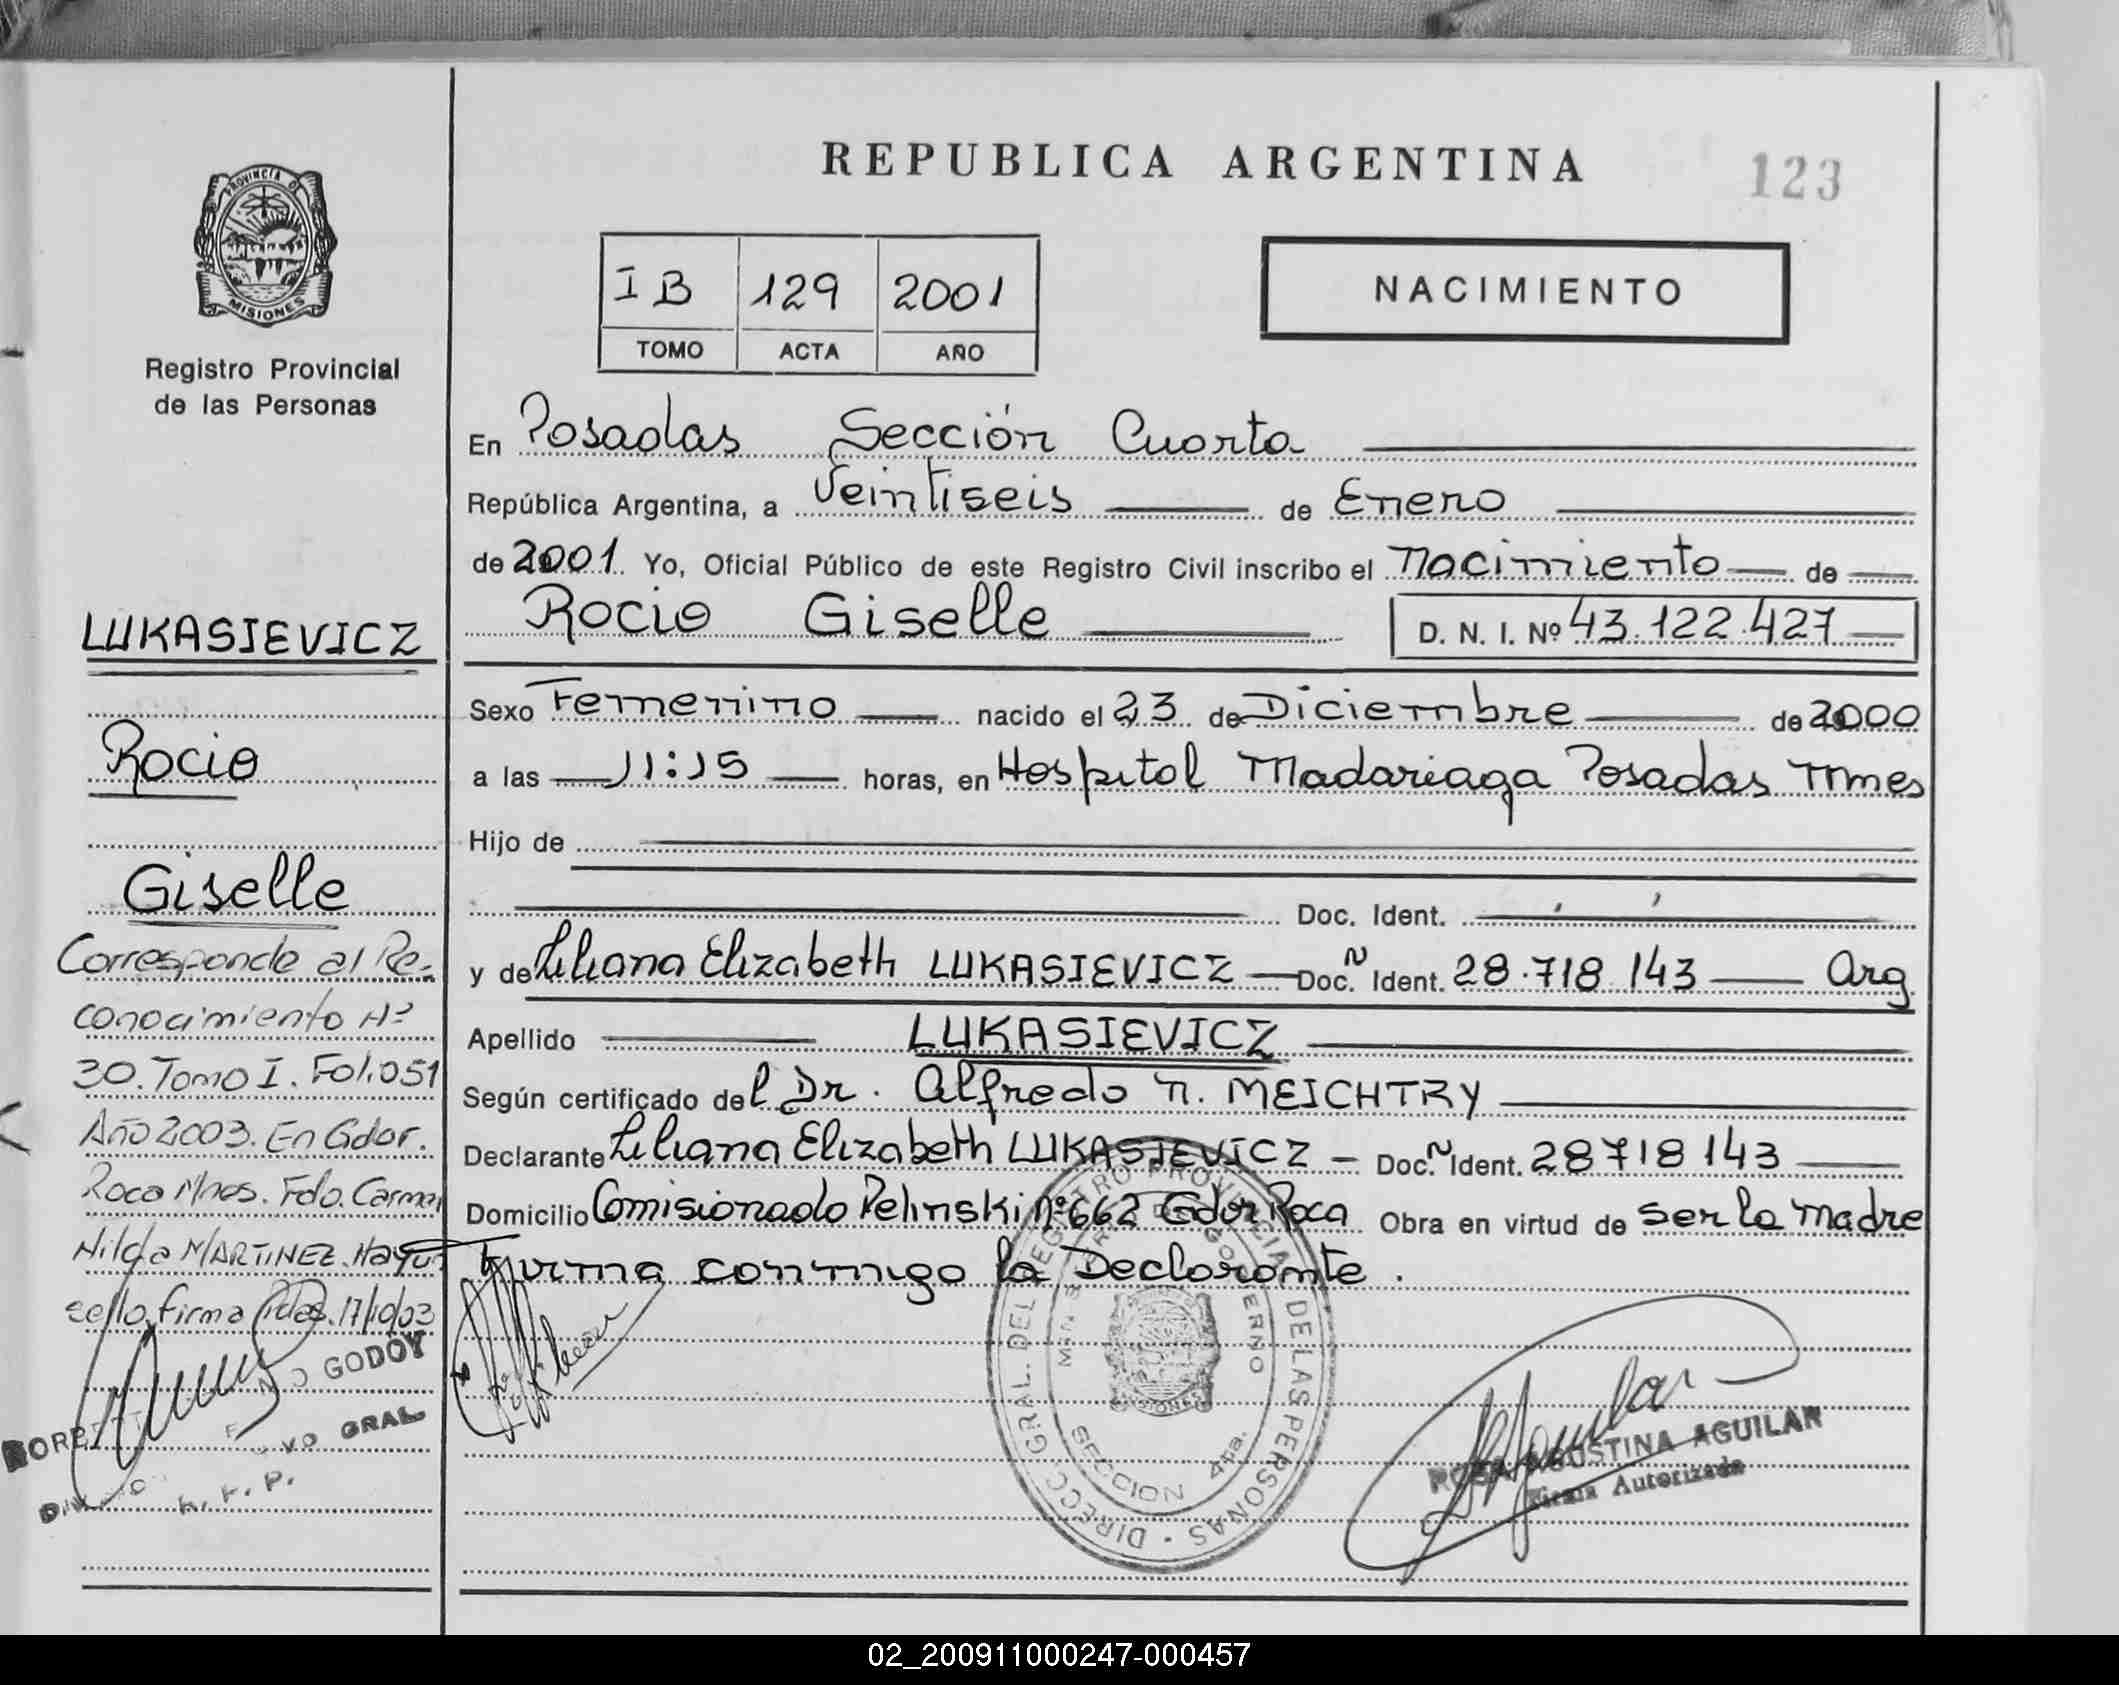 REPUBLICA ARGENTINA
123
PROVINCIA DE
MISIONES
Registro Provincial
de las Personas
I B 129 2001
TOMO ACTA AÑO
NACIMIENTO
En Posadas Sección Cuarta
República Argentina, a Veintiseis de Enero
de 2001 Yo, Oficial Público de este Registro Civil inscribo el Nacimiento de
Rocio Giselle D. N. I. Nº 43.122.427
Sexo Femenino nacido el 23 de Diciembre de 2000
a las 11:15 horas, en Hospital Madariaga Posadas Mnes
Hijo de
Doc. Ident.
y de Liliana Elizabeth LUKASIEVICZ Doc. Ident. 28.718.143 Arg.
Apellido LUKASIEVICZ
Según certificado del Dr. Alfredo N. MEICHTRY
Declarante Liliana Elizabeth LUKASIEVICZ - Doc. Ident. 28718143
Domicilio Comisionado Pelinski Nº 662 Gdor Roca Obra en virtud de ser la madre
Firma conmigo la Declarante.
LUKASIEVICZ
Rocio
Giselle
Corresponde al Re-
conocimiento Nº
30. Tomo I. Fol. 051
Año 2003. En Gdor.
Roca Mnes. Fdo. Carmen
Hilda MARTINEZ. Hay un
sello, firma Pdas. 17/10/03
GODOY
GRAL.
DIRECC. GRAL. DEL REGISTRO PROVINCIAL DE LAS PERSONAS
SECCION 4ta.
ROSA AGUSTINA AGUILAR
Firma Autorizada
02_200911000247-000457